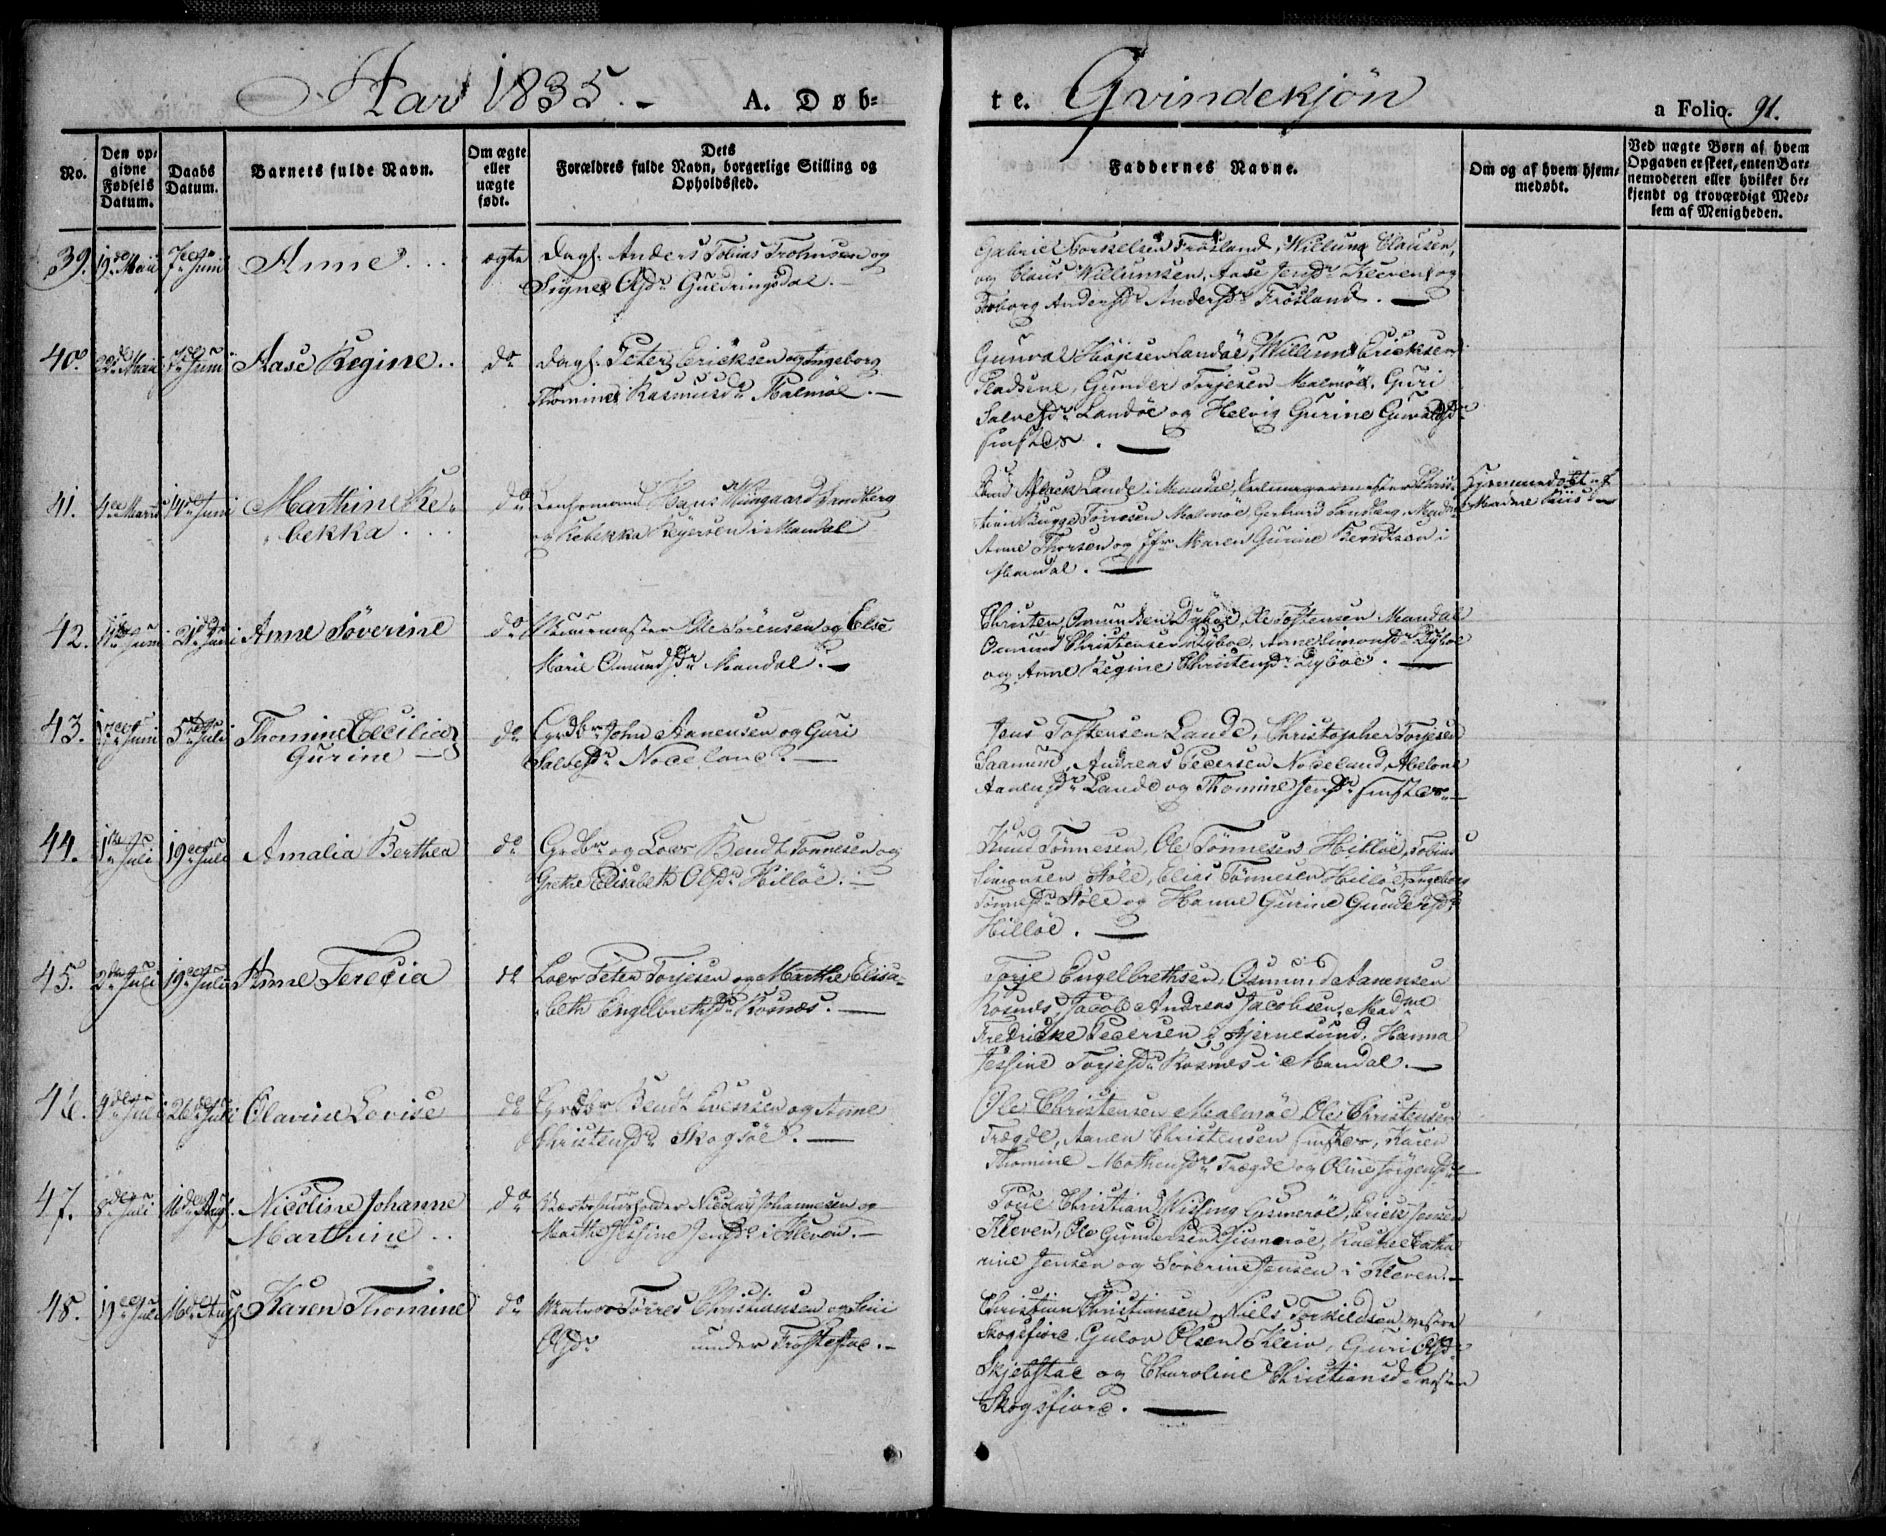 Aar 1835. - A. Døb-
te. Qvindekjøn a Folio. 91.
No.
Den op-
givne
Fødsels
Datum.
Daabs
Datum.
Barnets fulde Navn.
Om ægte
eller
uægte
født.
Dets
Forældres fulde Navn, borgerlige Stilling og
Opholdssted.
Faddernes Navne.
Om og af hvem hjem-
medøbt.
Ved uægte Børn af hvem
Opgaven er skeet, enten Bar-
nemoderen eller hvilket be-
kjendt og troværdigt Med-
lem af Menigheden.
39. 19de Maii 7de Juni Anne ægte Dagl. Anders Tobias Tromsen og
Signe Olsdr Guldringsdal.
Gabriel Frøsland, Willum Clausen,
og Claus Willumsen, Aase Jensdr Kleven og
Andersdr Frøsland.
40. Maii 7de Juni Aase Regine do Dagl. Peter Ericksen og Ingeborg
Thomine Rasmusdr Malmøe.
Gunval Landøe, Willum Ericksen
Pladsene, Gunder Torjesen Malmøe, Guri
Salvesdr Landøe og Helvig Gurine
41. 4de Martii 14de Juni Marthine Re-
bekka do Lensmand Hans Sandberg
og Rebekka Reyersen i Mandal
Knud Lande i Mandal,
tian Bugge Tørresen Malmøe, Gerhard Sandberg,
Anne Thorsen og Jfr Maren Gurine Berntsen i
Mandal.
Hjemmedøbt af
Madme
42. 11te Juni 21de Juni Anne Søverine do Ole Sørensen og Else
Marie Omundsdr Mandal.
Christen Omundsen Dyboe, Ole Tostensen Mandal
Omund Christensen Dyboe, Anne Simonsdr Dyboe
og Anne Regine Christensdr Dyboe.
43. 17de Juni 5te Juli Thomine Cecilia
Gurine do Grdbr John Aanensen og Guri
Salvesdr Nodeland.
Jens Tostensen Lande, Christopher Torjesen
Saanum, Andreas Pedersen Nodeland, Abelone
Aanensdr Lande og Thomine Jensdr
44. 1te Juli 19de Juli Amalia Berthea do Grdbr og Lods Bendt Tønnesen og
Grethe Elisabeth Olsdr Hilløe.
Knud Tønnesen, Ole Tønnesen Hilløe, Tobias
Simonsen Støle, Elias Tønnesen Hilløe, Ingeborg
Tønnesdr Støle og Hanne Gurine Gundersdr
Hilløe.
45. 2den Juli 19de Juli Anne Terecia do Lods Peter Torjesen og Marthe Elisa-
beth Engelbrethsdr Rosnæs.
Torje Engelbrethsen, Osmund Aanensen
Rosnes, Jacob Andreas Jacobsen, Madme
Fredricke Pedersen i Hjernesund, Hanna
Jessine Torjesdr Rosnes i Mandal.
46. 4de Juli 26de Juli Olavine Lovise do Grdbr Bendt Svensen og Anne
Christensdr Skogsøe.
Ole Christensen Malmøe, Ole Christensen
Trægde, Aanen Christensen Karen
Thomine Mathensdr Trægde og Oline Jørgensdr
47. 8de Juli Aug. Nicoline Johanne
Marthine do Værtshuusholder Nicolay Johannesen og
Marthe Jessine Jensdr i Kleven.
Christian Nissing Gismerøe, Erick Jensen
Kleven, Ole Gundersen Gismerøe, Rachel Catha
rine Jensen og Søverine Jensen i Kleven.
48. 19de Juli 16de Aug. Karen Thomine do Tørres Christiansen og Siri
Olsdr under Frøstestad.
Christian Christiansen, Niels Torkildsen vestre
Skogsfiord, Gulov Olsen Kleiv, Guri Olsdr
Skjebstad og Charoline Christiansdr vestre
Skogsfiord.